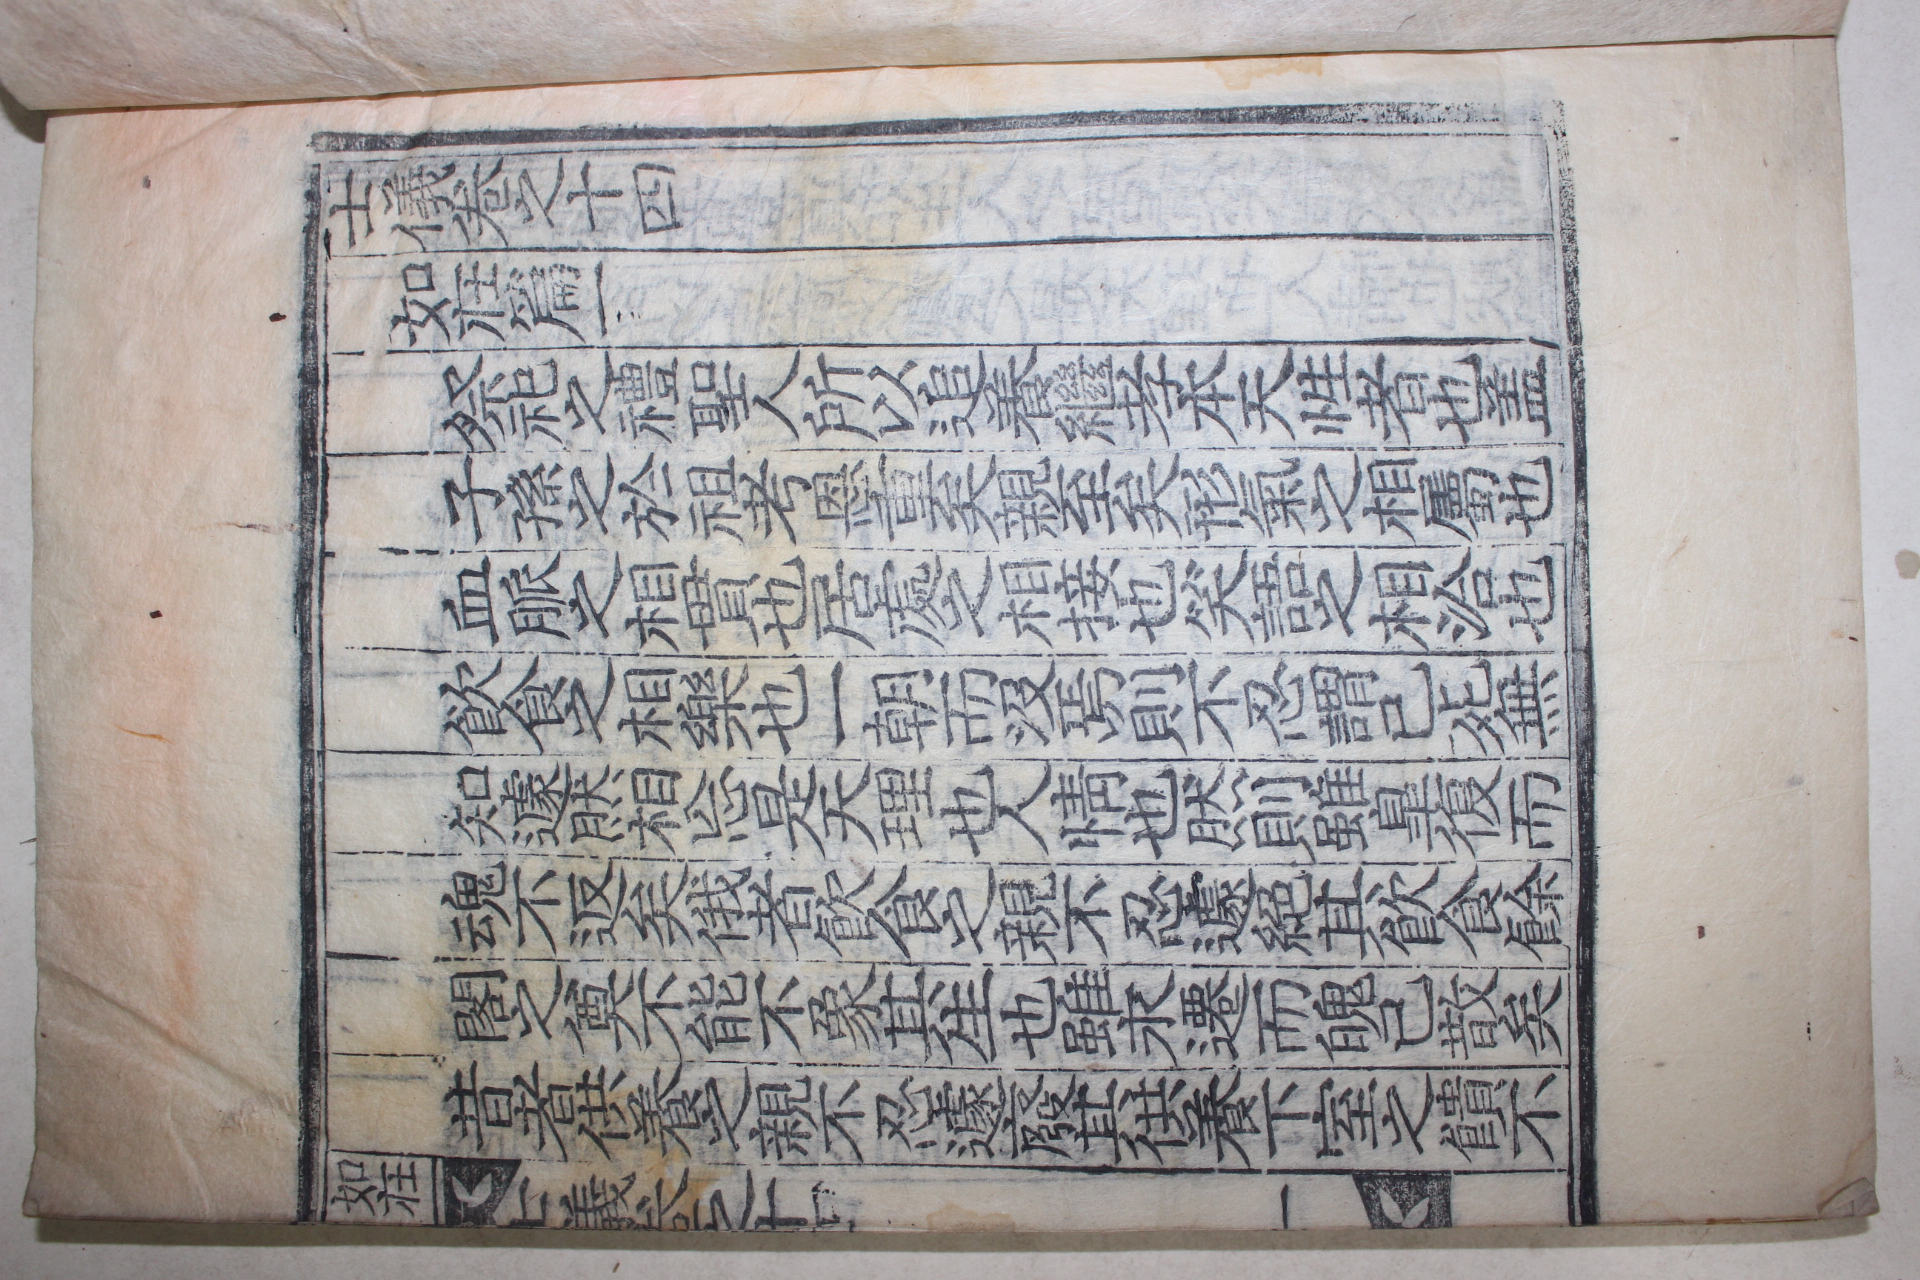 士儀卷之十四
如在篇一
祭祀之禮聖人所以追養繼孝本天性者也盖
子孫之於祖考恩重矣親至矣形氣之相屬也
血脈之相貫也居處之相接也笑語之相洽也
飮食之相樂也一朝而沒焉則不忍謂已死無
知遽然相忘是天理也人情也然則雖臯復而
魂不返矣俄者飮食之親不忍遽絕其飮食餘
閣之奠不能不象其生也雖永遷而魄已散矣
昔者供養之親不忍遽廢其供養下室之饋不
如在
士儀卷之十四
一